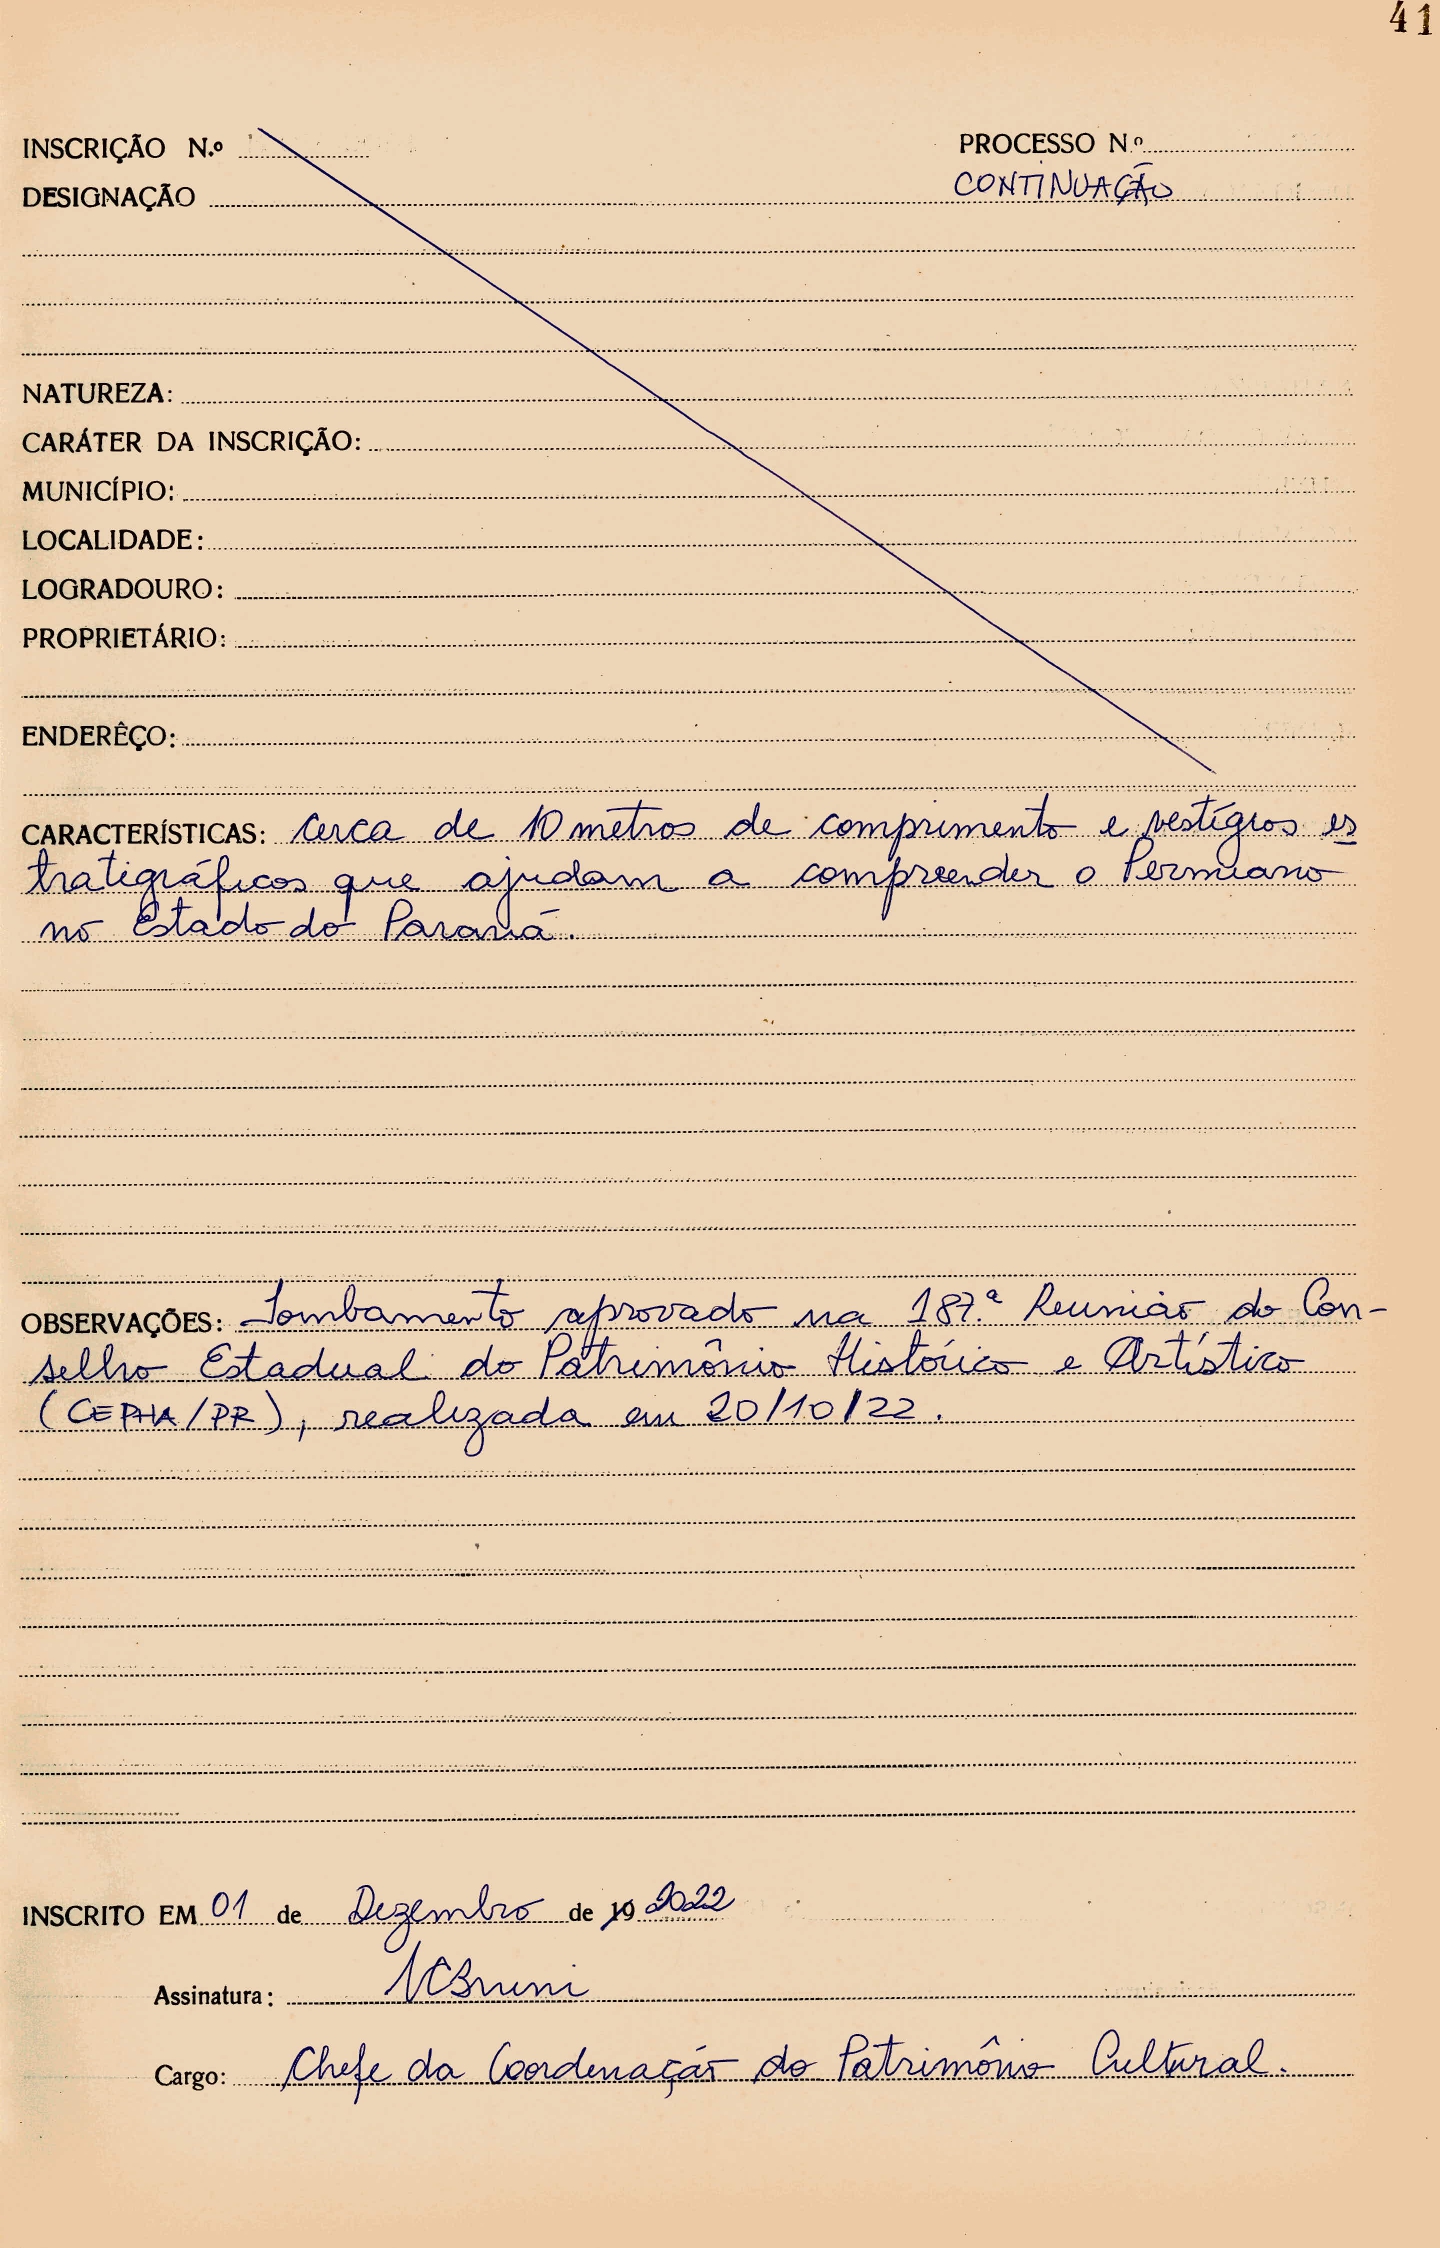 41
INSCRIÇÃO N.º PROCESSO N.º
DESIGNAÇÃO CONTINUAÇÃO
NATUREZA:
CARÁTER DA INSCRIÇÃO:
MUNICÍPIO:
LOCALIDADE:
LOGRADOURO:
PROPRIETÁRIO:
ENDERÊÇO:
CARACTERÍSTICAS: cerca de 10 metros de comprimento e vestígios es
tratigráficos que ajudam a compreender o Permiano
no Estado do Paraná.
OBSERVAÇÕES: Tombamento aprovado na 187.ª Reunião do Con-
selho Estadual do Patrimônio Histórico e Artístico
(CEPHA/PR), realizada em 20/10/22.
INSCRITO EM 01 de Dezembro de 19 2022
Assinatura: VCBruni
Cargo: Chefe da Coordenação do Patrimônio Cultural.